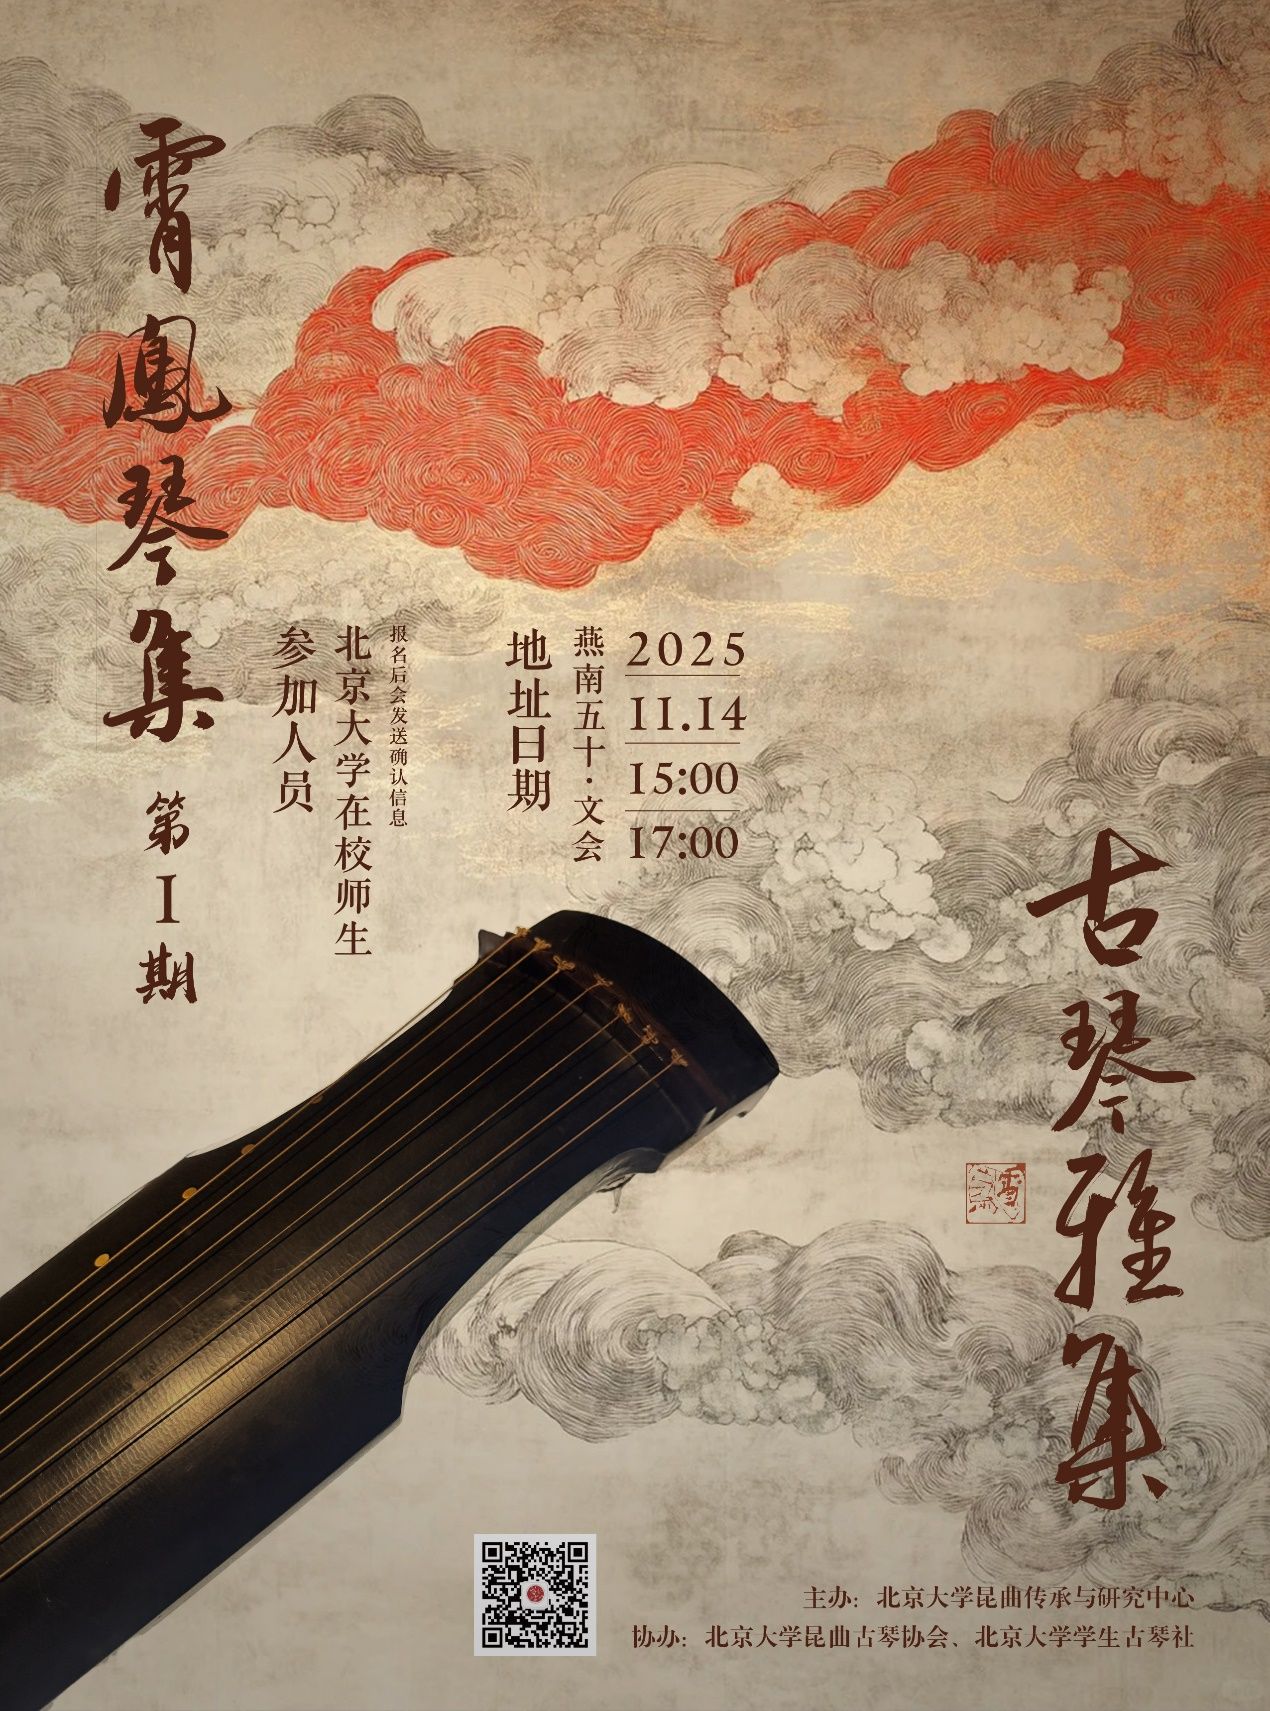 霄鳳琴集
第I期
参加人员
北京大学在校师生
报名后会发送确认信息
地址日期
燕南五十·文会
2025
11.14
15:00
17:00
古琴雅集
主办：北京大学昆曲传承与研究中心
协办：北京大学昆曲古琴协会、北京大学学生古琴社